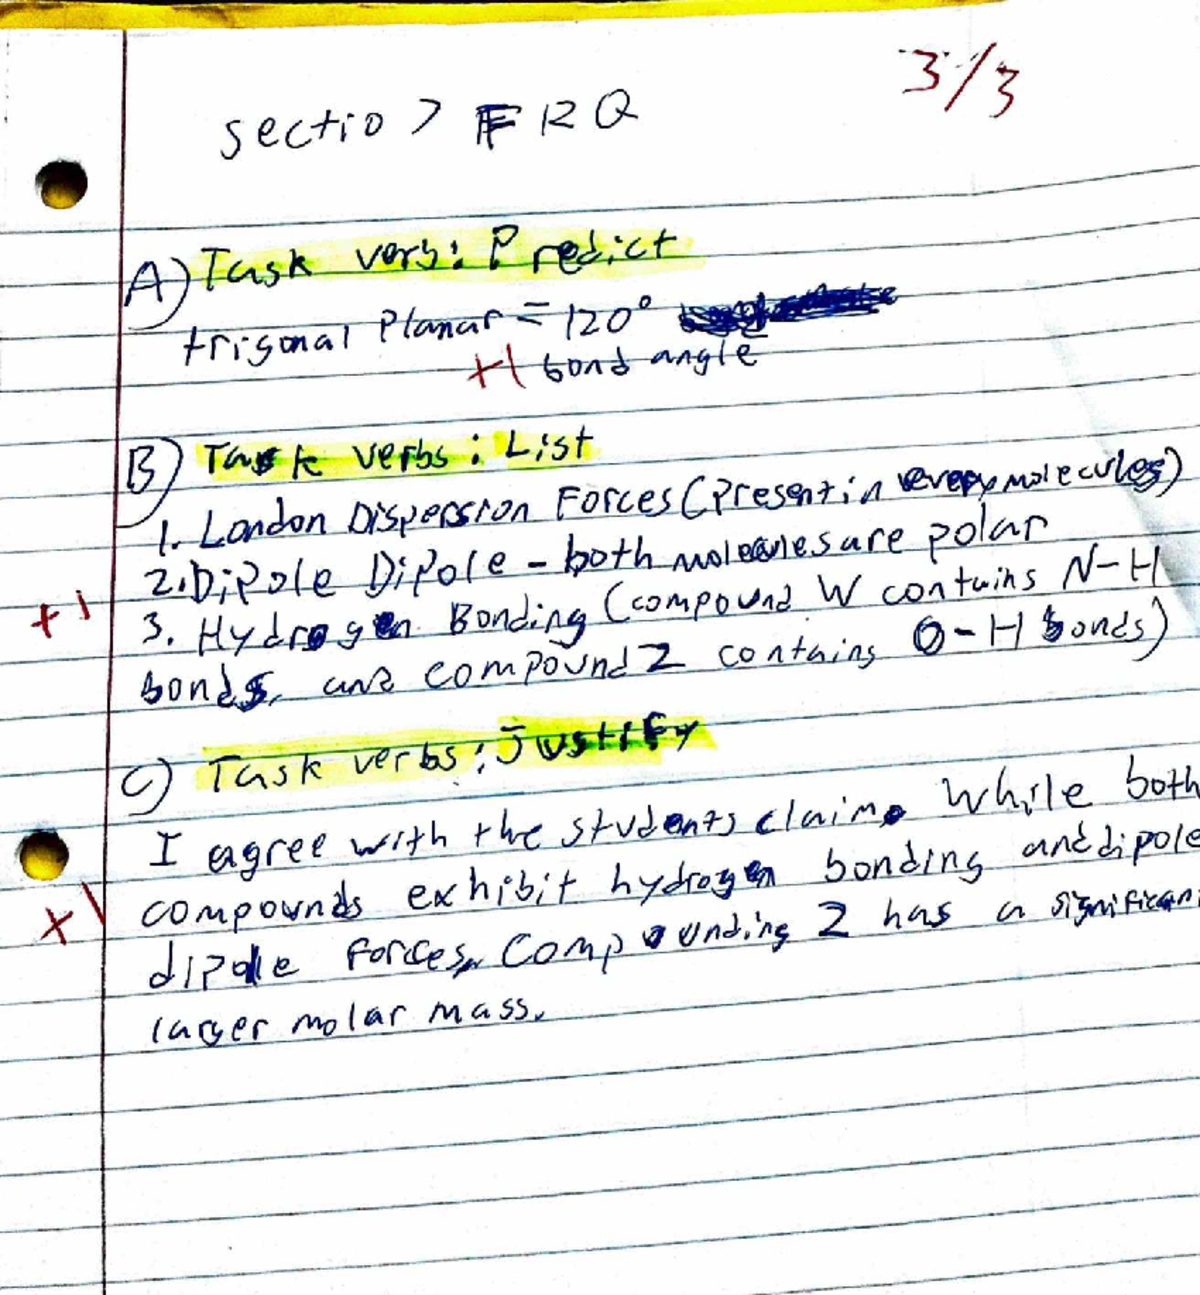 3/3
sectio 7 FRQ
A) Task verb: Predict
trigonal Planar = 120°
+1 bond angle
B) Task verbs: List
1. London Dispersion Forces (Present in every molecules)
2. Dipole Dipole - both molecules are polar
+1 3. Hydrogen Bonding (compound W contains N-H
bonds, and compound Z contains O-H bonds)
C) Task verbs: Justify
I agree with the students claim. While both
+1 compounds exhibit hydrogen bonding and dipole
dipole forces, Compounding Z has a significan
larger molar mass.